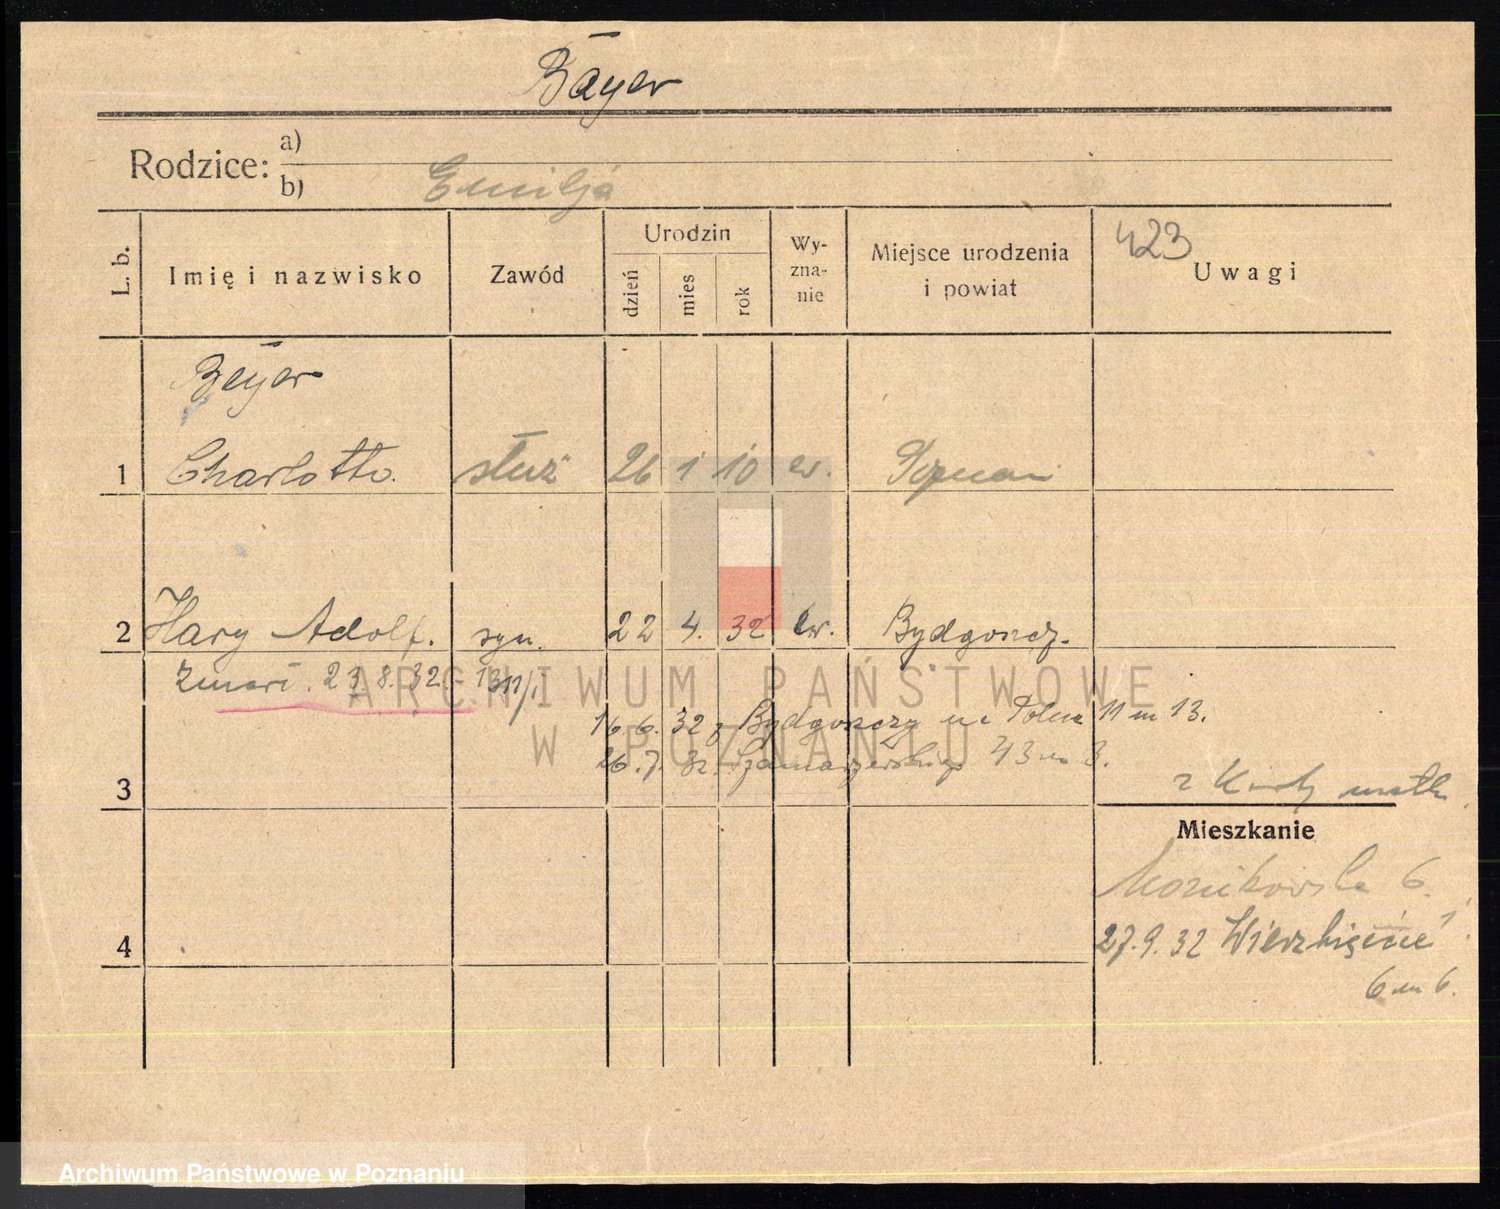 Bayer
Rodzice: a)
b) Emilja
L. b. Imię i nazwisko Zawód Urodzin dzień mies rok Wy-zna-nie Miejsce urodzenia i powiat 423 Uwagi
Beyer
1 Charlotte. służ 26 1 10 ew. Poznań
2 Hary Adolf. syn. 22 4. 32 ew. Bydgoszcz.
zmarł 23.8.32
16.6.32 z Bydgoszczy Polna 11 m 13.
26.7.32. Szamarzewskiego 43 m 3.
3 z Karty matki
Mieszkanie
6.
4 27.9.32 Wierzbięcie
6 m 6.
ARCHIWUM PAŃSTWOWE
W POZNANIU
Archiwum Państwowe w Poznaniu